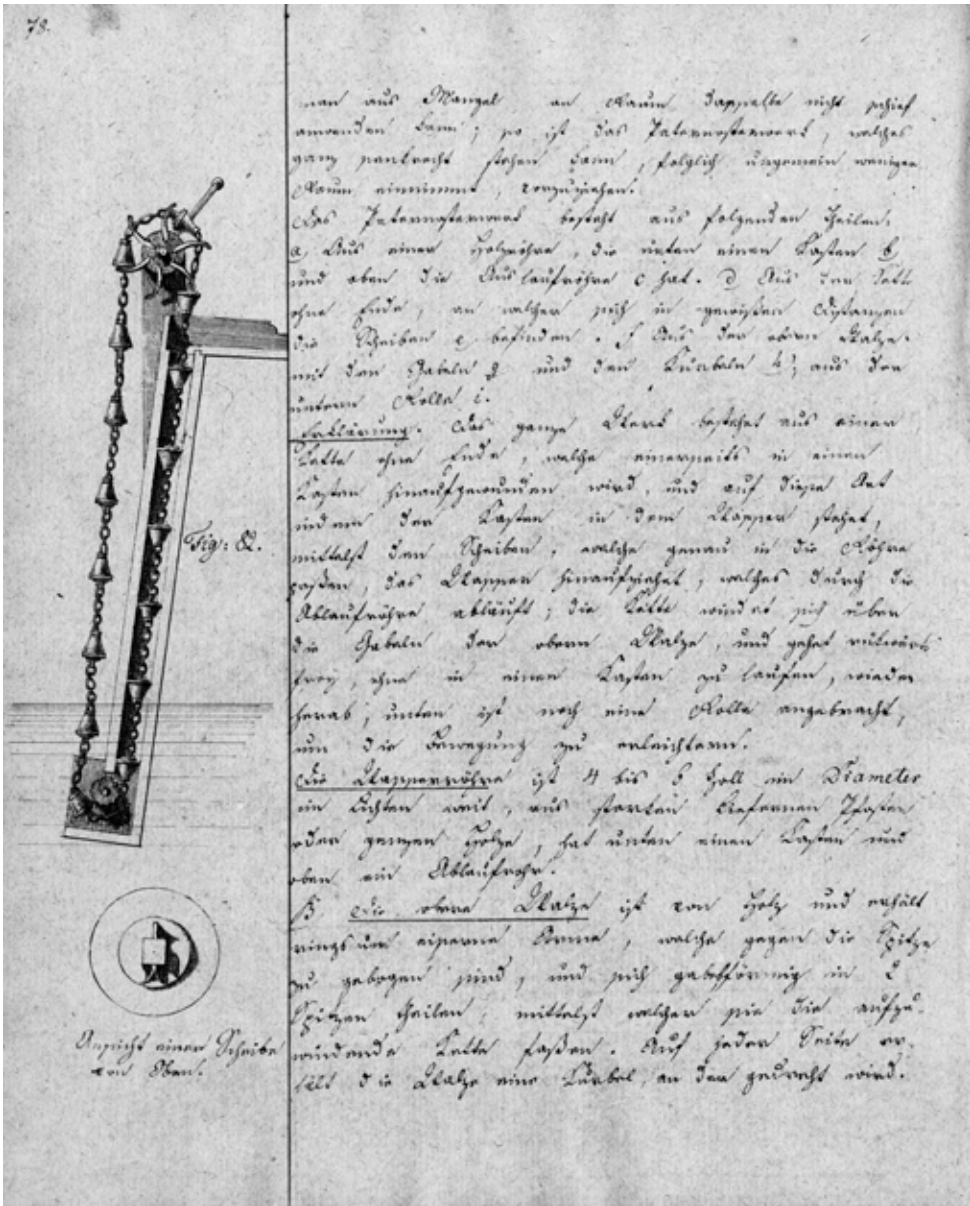 78.
man aus Mangel an Raum dasselbe nicht schief
anwenden kann; so ist das Paternosterwerk, welches
ganz senkrecht stehen kann, folglich ungemein weniger
Raum einnimmt, vorzuziehen.
Das Paternosterwerk besteht aus folgenden Theilen.
a, Aus einer Holzröhre, die unten einen Kasten b
und oben die Auslaufröhre c hat. d Aus der Kette
ohne Ende, an welcher sich in gewißen Distanzen
die Scheiben e befinden. f Aus der obern Walze
mit den Gabeln g und den Kurbeln h; aus der
untern Rolle i.
Erklärung. Das ganze Werk bestehet aus einer
Kette ohne Ende, welche einerseits in einen
Kasten hinaufgewunden wird, und auf diese Art
indem der Kasten in dem Wasser stehet,
mittelst den Scheiben, welche genau in die Röhre
paßen, das Wasser hinaufziehet, welches durch die
Ablaufröhre abläuft; die Kette windet sich über
die Gabeln der obern Walze, und gehet rükwärts
frey, ohne in einen Kasten zu laufen, wieder
herab; unten ist noch eine Rolle angebracht,
um die Bewegung zu erleichtern.
Die Wasserröhre ist 4 bis 6 Zoll im Diameter
im Lichten weit, aus starken kiefernen Pfosten
oder ganzen Holze, hat unten einen Kasten und
oben ein Ablaufrohr.
Die obere Walze ist von Holz und erhält
ringsum eiserne Arme, welche gegen die Spitze
zu gebogen sind, und sich gabelförmig in 2
Spitzen theilen; mittelst welcher sie die aufzu-
windende Kette faßen. Auf jeder Seite er-
hält die Walze eine Kurbel, an der gedreht wird.
Fig: 82.
Ansicht einer Scheibe
von Oben.